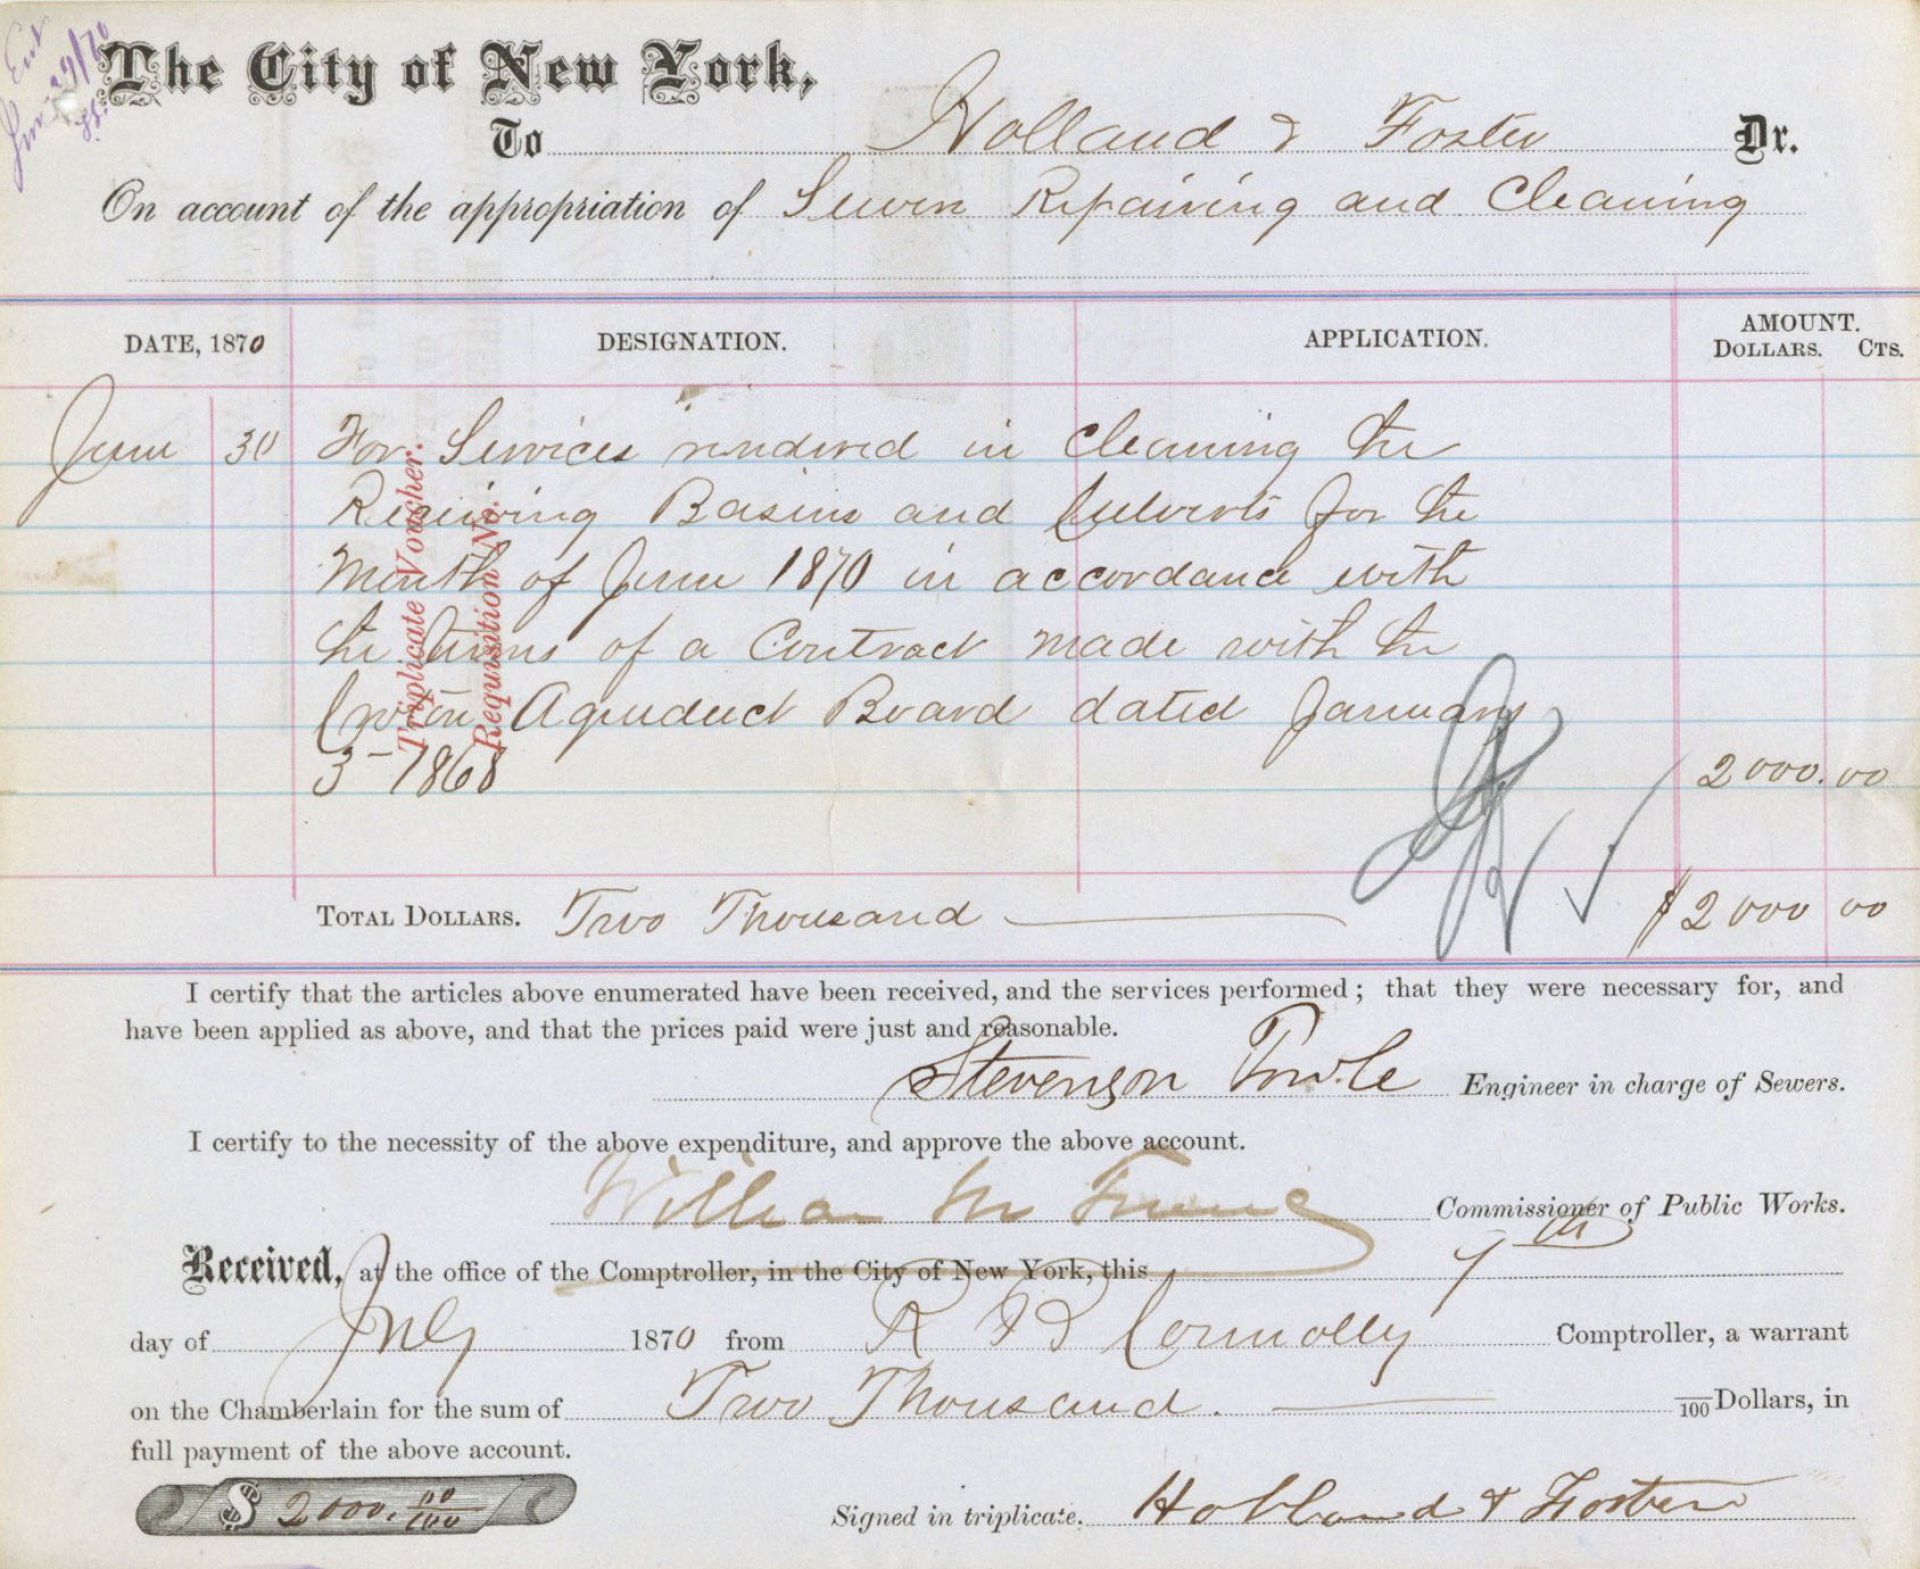 Ent
The City of New York,
To Holland & Foster Dr.
On account of the appropriation of Sewer Repairing and Cleaning
DATE, 1870 DESIGNATION. APPLICATION. AMOUNT.
DOLLARS. CTS.
June 30 For Services rendered in Cleaning the
Receiving Basins and Culverts for the
Month of June 1870 in accordance with
the terms of a Contract made with the
Croton Aqueduct Board dated January
3 - 1868 2000.00
Triplicate Voucher.
Requisition No.
TOTAL DOLLARS. Two Thousand $2000 00
I certify that the articles above enumerated have been received, and the services performed; that they were necessary for, and
have been applied as above, and that the prices paid were just and reasonable.
Stevenson Towle Engineer in charge of Sewers.
I certify to the necessity of the above expenditure, and approve the above account.
William M Tweed Commissioner of Public Works.
Received, at the office of the Comptroller, in the City of New York, this 7th
day of July 1870 from R B Connolly Comptroller, a warrant
on the Chamberlain for the sum of Two Thousand. /100 Dollars, in
full payment of the above account.
$ 2000. 00/100
Signed in triplicate. Holland & Foster